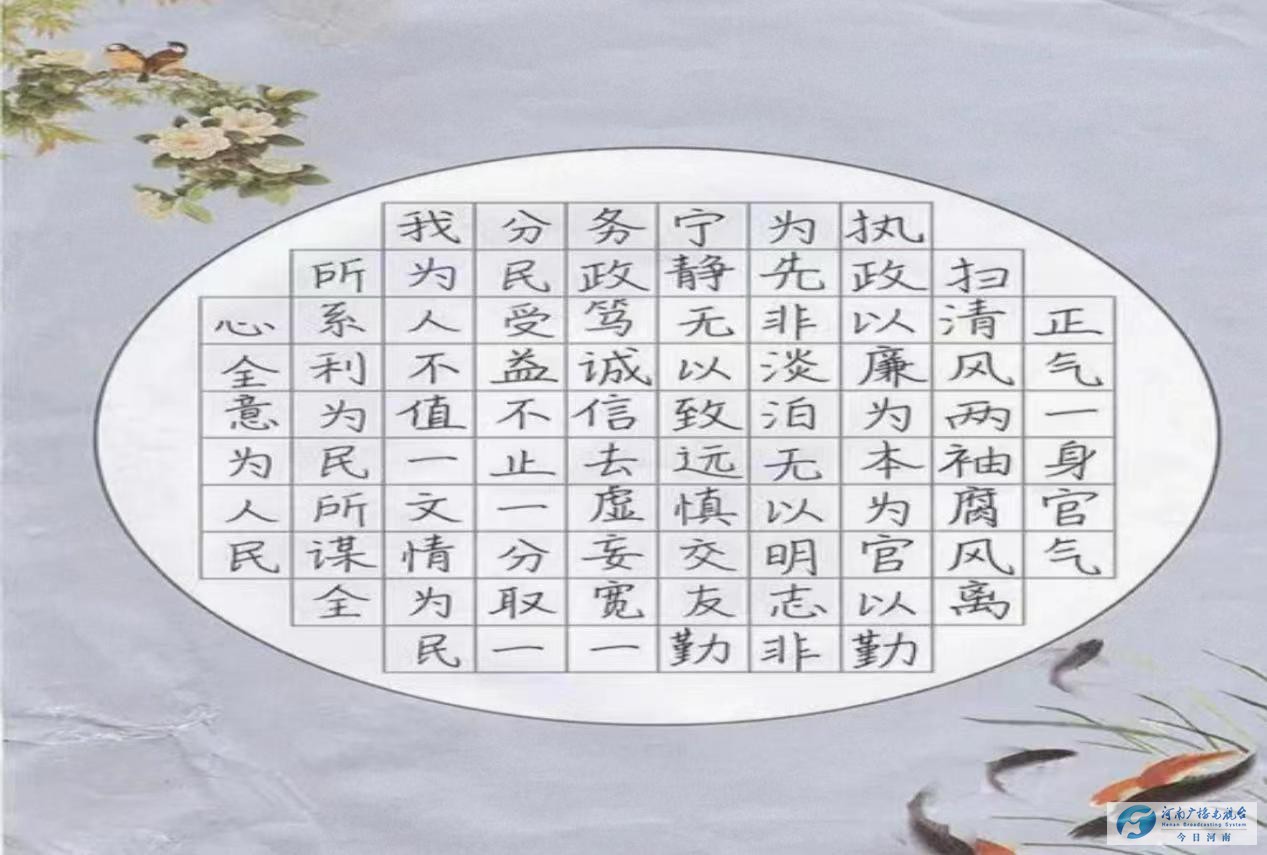 正气一身官气
扫清风两袖腐风离
执政以廉为本为官以勤
为先非淡泊无以明志非
宁静无以致远慎交友勤
务政笃诚信去虚妄宽一
分民受益不止一分取一
我为人不值一文情为民
所系利为民所谋全
心全意为人民
河南广播电视台
Henan Broadcasting System
今日河南